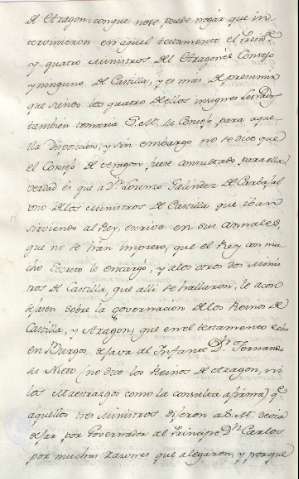 de Aragon; aunque no se puede negar que in
tervinieron en aquel testamento el
y quatro Ministros de Aragones Consejo
y ninguno de Castilla, y es mas de presumir
que siendo los quatro dellos
tambien tomaria S. M. su Consejo para aque
lla disposicion, y sin embargo no se dice que
el Consejo de Aragon fuese consultado para ella
verdad es que a Dn. Lorenzo Galindez de Carbajal
uno de los Ministros de Castilla que iban
sirviendo al Rey, escrive en sus annales,
que no se han impreso, que el Rey con mu
cho secreto le encargó, y a los otros dos Minis
tros de Castilla, que alli se hallaron, le acon
sejasen sobre la governacion de los Reinos de
Castilla, y Aragon, que en el testamento echo
en Burgos dejava al Infante Dn. Fernan
su Nieto (no dice los Reinos de Aragon, ni
los Maestrazgos como la consulta afirma) qe
aquellos tres Ministros dijeron a S. M. devia
dejar por Governador al Principe Dn. Carlos
por muchas razones que alegaron, y porque